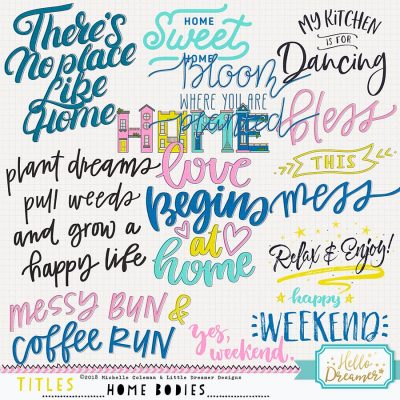 There's
No place
Like
Home
HOME
Sweet
HOME
MY KITCHEN
IS FOR
Dancing
Bloom
WHERE YOU ARE
planted
HOME
bless
THIS
mess
plant dreams
pull weeds
and grow a
happy life
love
Begins
at
home
Relax & Enjoy!
happy
WEEKEND
messy BUN &
coffee RUN
yes,
weekend.
Hello
Dreamer
©2018 Michelle Coleman & Little Dreamer Designs
TITLES HOME BODIES